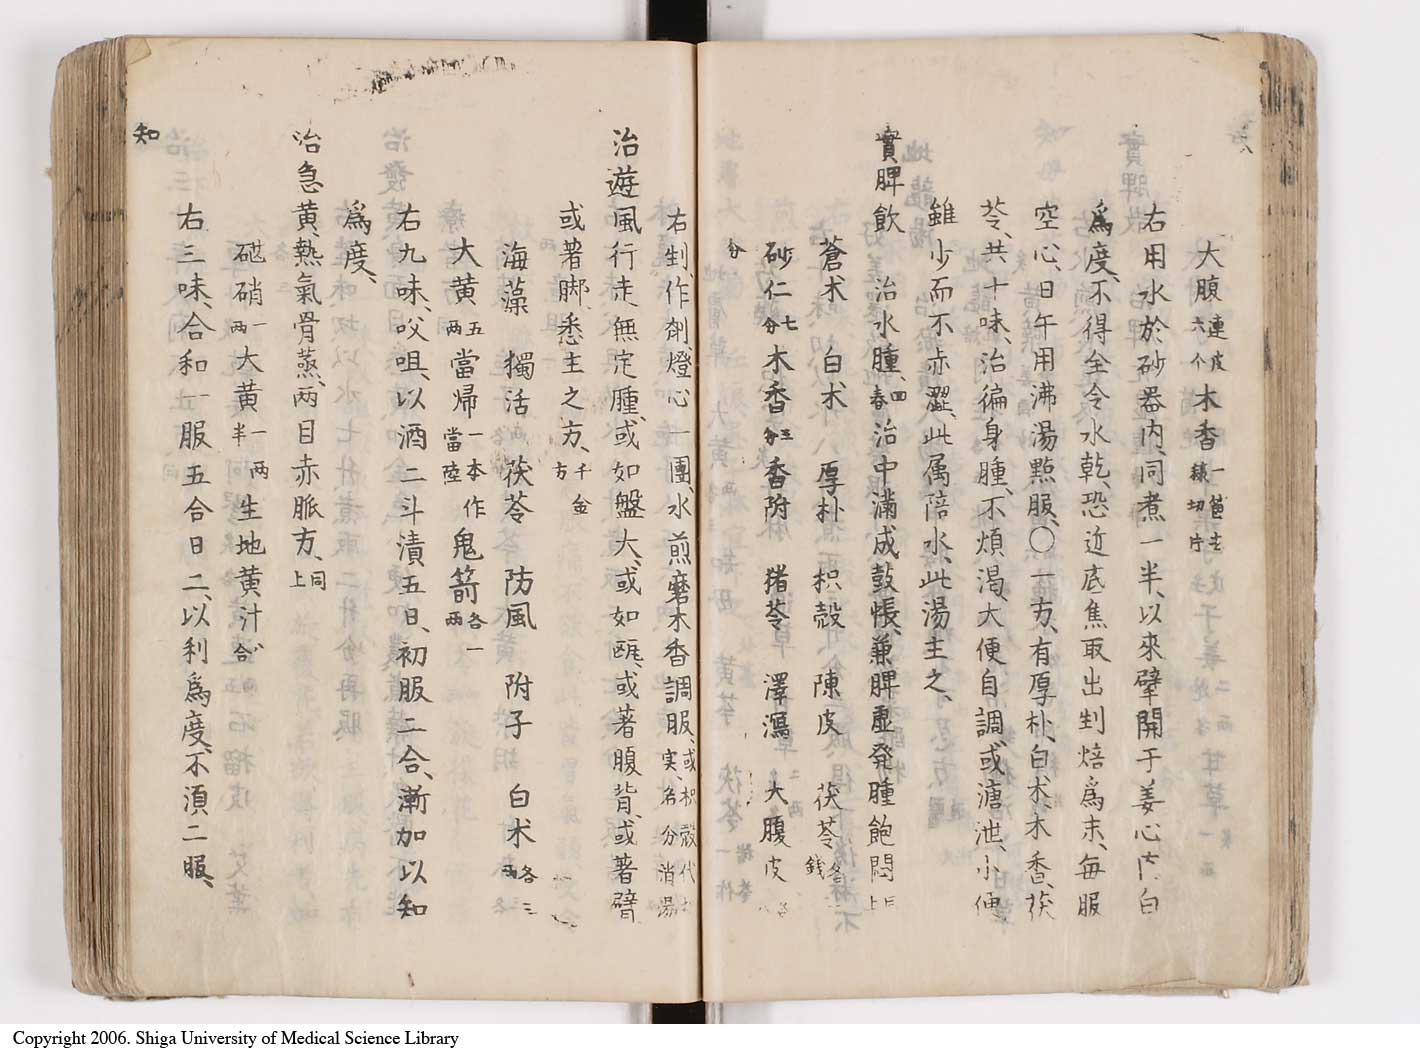 大腹連皮六个木香一箇生辣切片
右用水於砂器内、同煮一半、以來擘開于姜心内白
爲度、不得全令水乾、恐近底焦取出剉焙爲末、毎服
空心、日午用沸湯點服、〇一方、有厚朴、白术、木香、茯
苓、共十味、治徧身腫、不煩渇、大便自調或溏泄、小便
雖少而不赤澀、此属陰水、此湯主之、
實脾飲 治水腫、四春治中滿成鼓帳、兼脾虚発腫飽悶上同
蒼术 白术 厚朴 枳殻 陳皮 茯苓各錢
砂仁七分木香三分香附 猪苓 澤瀉 大腹皮
分
右剉、作劑、燈心一團、水煎磨木香調服、或枳殻代
実、名分消湯
治遊風行走無定腫、或如盤大、或如甌、或著腹背、或著臂
或著脚、悉主之方、千金方
海藻 獨活 茯苓 防風 附子 白术各三两
大黄五两當帰一本作當陸鬼箭各一两
右九味、㕮咀、以酒二斗漬五日、初服二合、漸加以知
爲度、
治急黄、熱氣骨蒸、两目赤脈方、同上
硭硝一两大黄一两半生地黄汁合
右三味、合和一服五合日二、以利爲度、不湏二服、
知